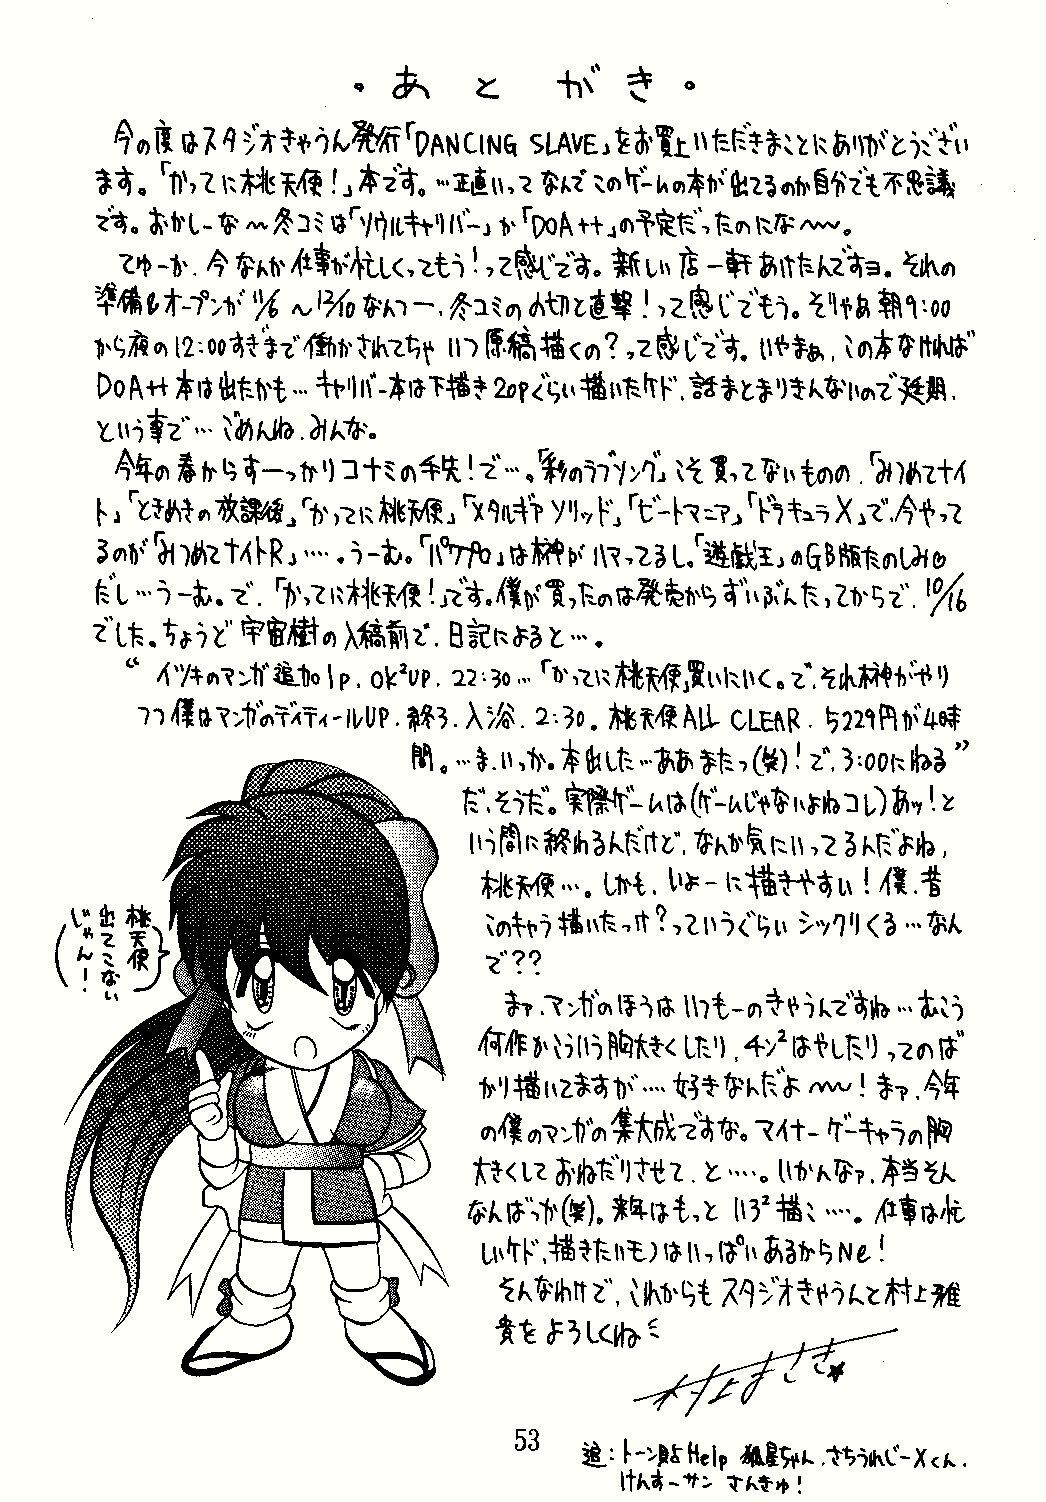 ・あとがき・
今の度はスタジオきゃうん発行「DANCING SLAVE」をお買上いただきまことにありがとうござい
ます。「かってに桃天使!」本です。…正直いってなんでこのゲームの本が出てるのか自分でも不思議
です。おかしーな〜冬コミは「ソウルキャリバー」か「DOA++」の予定だったのにな〜〜。
てゆーか、今なんか仕事が忙しくってもう!って感じです。新しい店一軒あけたんですヨ。それの
準備&オープンが11/6〜12/10なんつー、冬コミの〆切と直撃!って感じでもう。そりゃあ朝9:00
から夜の12:00すぎまで働かされてちゃいつ原稿描くの?って感じです。いやまぁ、この本なければ
DOA++本は出たかも…キャリバー本は下描き20Pぐらい描いたケド、話まとまりきんないので延期、
という事で…ごめんね、みんな。
今年の春からすーっかりコナミの手先!で…。「彩のラブソング」こそ買ってないものの、「みつめてナイ
ト」「ときめきの放課後」「かってに桃天使」「メタルギアソリッド」「ビートマニア」「ドラキュラX」で、今やって
るのが「みつめてナイトR」…。うーむ。「パワプロ」は榊がハマってるし。「遊戯王」のGB版たのしみ
だし…うーむ。で、「かってに桃天使!」です。僕が買ったのは発売からずいぶんたってからで、10/16
でした。ちょうど宇宙樹の入稿前で、日記によると…。
“イツキのマンガ追加1P、OK²UP、22:30…「かってに桃天使」買いにいく。で、それ榊がやり
つつ僕はマンガのディティールUP、終了、入浴、2:30。桃天使ALL CLEAR、5229円が4時
間。…ま、いっか。本出した…ああまたっ(笑)!で、3:00にねる”
だ、そうだ。実際ゲームは(ゲームじゃないよねコレ)あッ!と
いう間に終わるんだけど、なんか気にいってるんだよね、
桃天使…。しかも、いよーに描きやすい!僕、昔
このキャラ描いたっけ?っていうぐらいシックリくる…なん
で??
桃天使
出てこない
じゃん!
まァ、マンガのほうはいつもーのきゃうんですね…むこう
何作かこういう胸大きくしたり、チン²はやしたりってのば
かり描いてますが…好きなんだよ〜〜!まァ、今年
の僕のマンガの集大成ですな。マイナーゲーキャラの胸
大きくしておねだりさせて、と…。いかんなァ、本当そん
なんばっか(笑)。来年はもっといろ²描こ…。仕事は忙
しいケド、描きたいモノはいっぱいあるからNe!
そんなわけで、これからもスタジオきゃうんと村上雅
貴をよろしくね
村上まさき
53
追:トーン貼Help 狐星ちゃん、さちうれじーXくん、
けんすーサン さんきゅ!